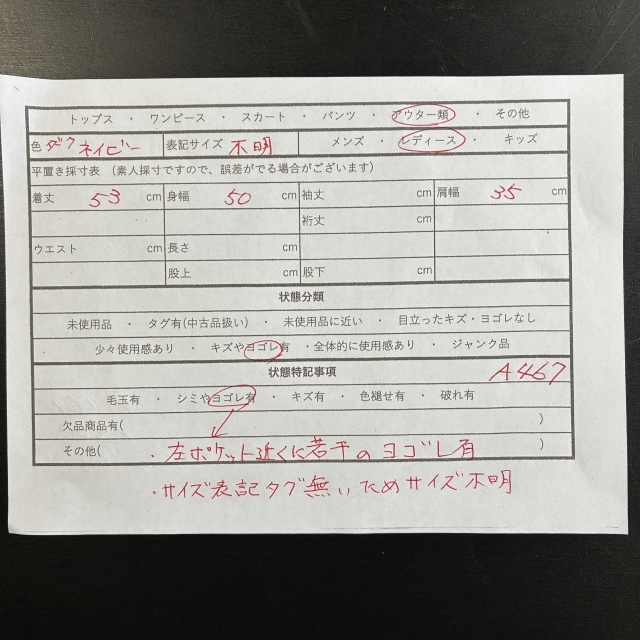 トップス ・ ワンピース ・ スカート ・ パンツ ・ アウター類 ・ その他
色 ダークネイビー 表記サイズ 不明 メンズ ・ レディース ・ キッズ
平置き採寸表 (素人採寸ですので、誤差がでる場合がございます)
着丈 53 cm 身幅 50 cm 袖丈 cm 肩幅 35 cm
裄丈 cm
ウエスト cm 長さ cm
股上 cm 股下 cm
状態分類
未使用品 ・ タグ有(中古品扱い) ・ 未使用品に近い ・ 目立ったキズ・ヨゴレなし
・ 少々使用感あり ・ キズやヨゴレ有 ・全体的に使用感あり ・ ジャンク品
状態特記事項 A467
毛玉有 ・ シミやヨゴレ有 ・ キズ有 ・ 色褪せ有 ・ 破れ有
欠品商品有( )
その他( ・左ポケット近くに若干のヨゴレ有 )
・サイズ表記タグ無いためサイズ不明